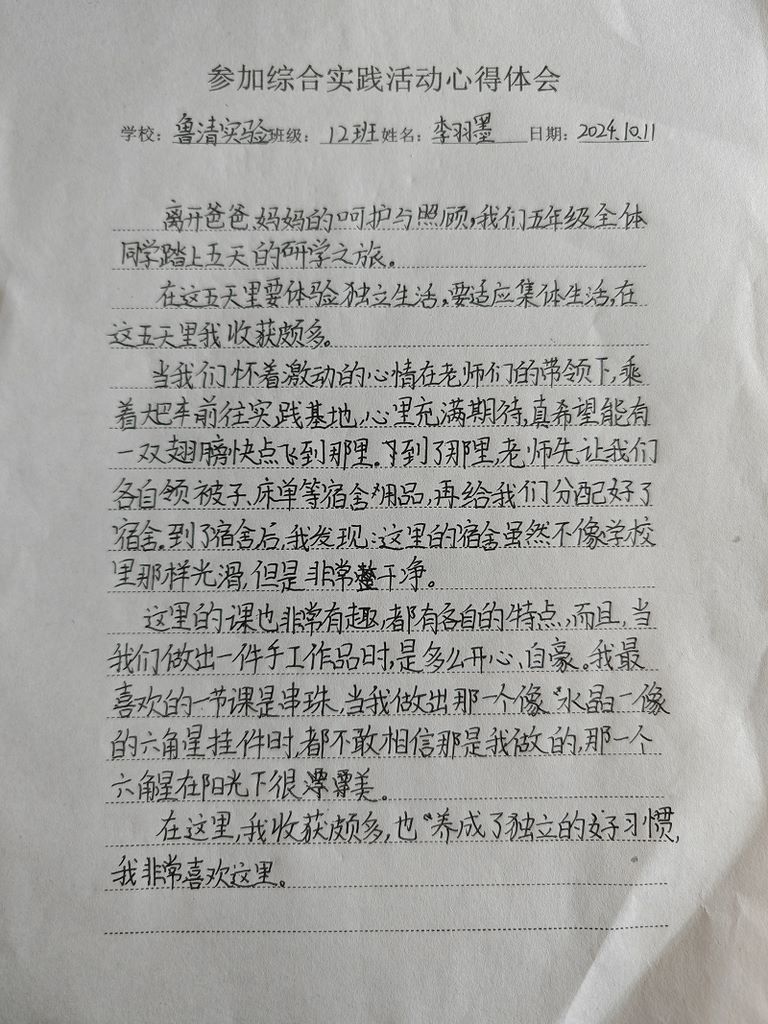 参加综合实践活动心得体会
学校：鲁清实验班级：12班姓名：李羽墨 日期：2024.10.11
离开爸爸、妈妈的呵护与照顾，我们五年级全体
同学踏上五天的研学之旅。
在这五天里要体验独立生活，要适应集体生活，在
这五天里我收获颇多。
当我们怀着激动的心情在老师们的带领下，乘
着大巴车前往实践基地，心里充满期待，真希望能有
一双翅膀快点飞到那里。到了那里，老师先让我们
各自领被子、床单等宿舍用品，再给我们分配好了
宿舍。到了宿舍后，我发现：这里的宿舍虽然不像学校
里那样光滑，但是非常整干净。
这里的课也非常有趣，都有各自的特点，而且，当
我们做出一件手工作品时，是多么开心、自豪。我最
喜欢的一节课是串珠，当我做出那一个像“水晶一像
的六角星挂件时，都不敢相信那是我做的，那一个
六角星在阳光下很漂美。
在这里，我收获颇多，也“养成了独立的好习惯，
我非常喜欢这里。